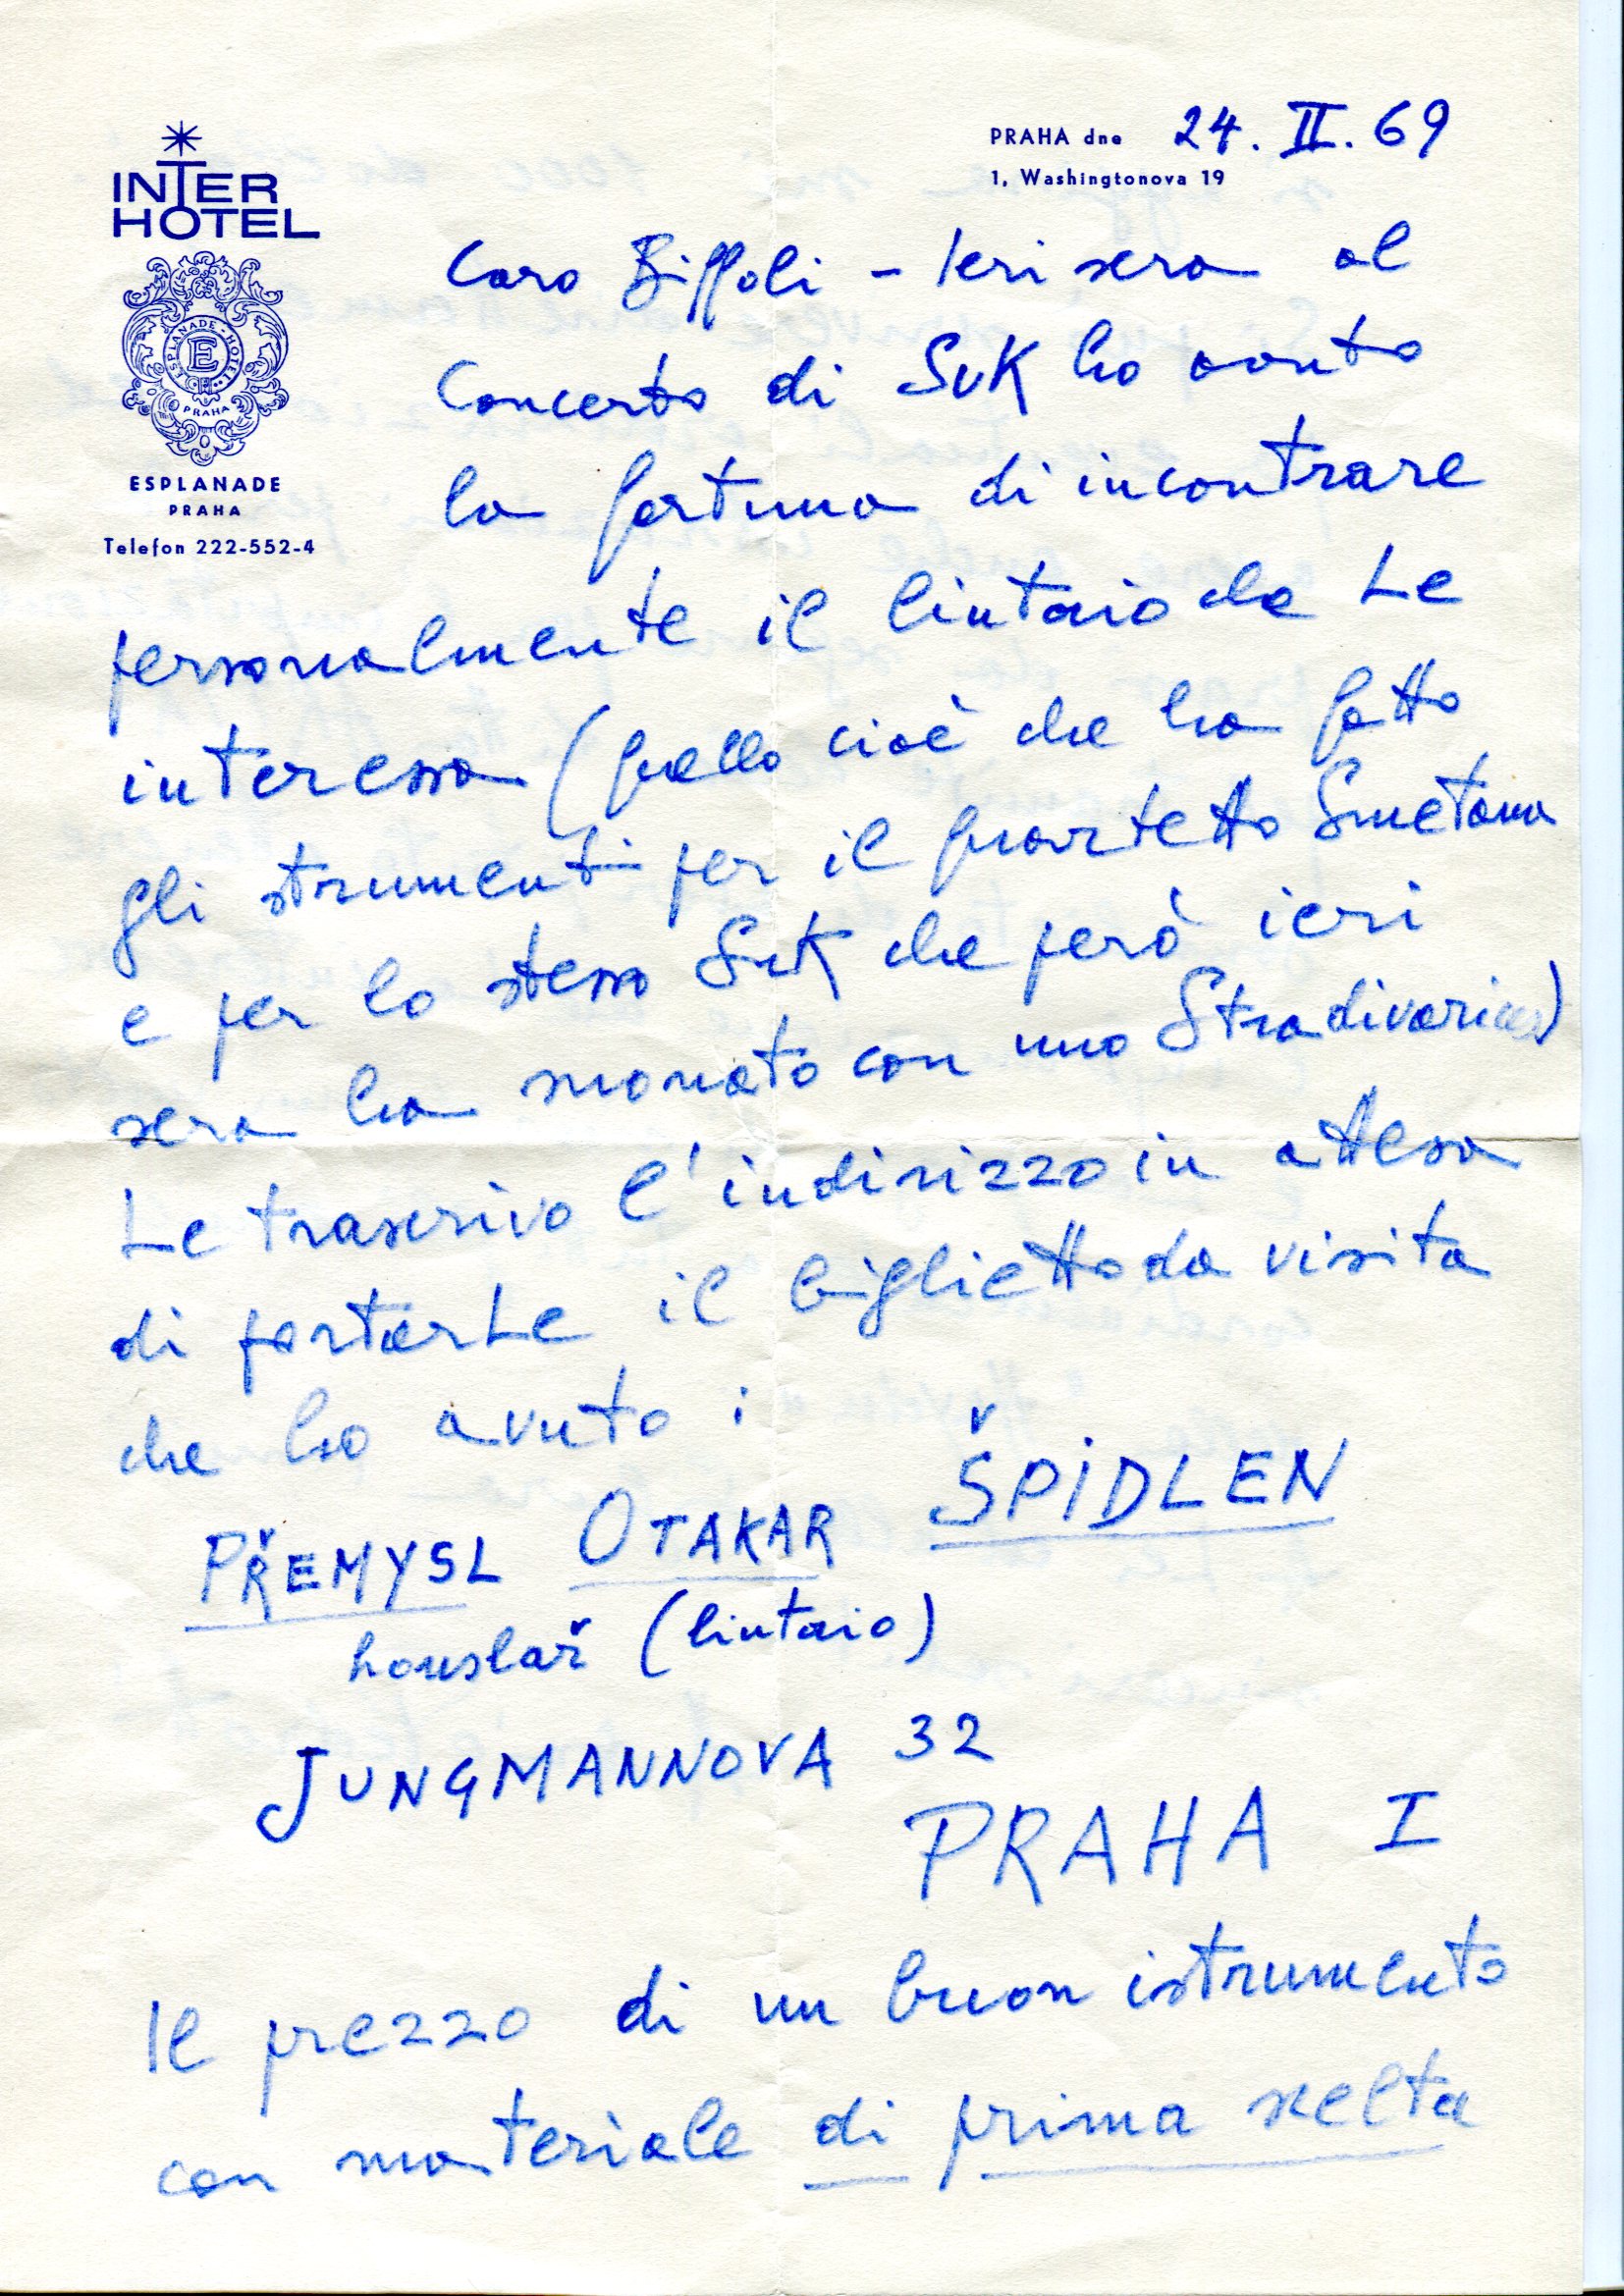 INTER
HOTEL
ESPLANADE · HOTEL
E
PRAHA
ESPLANADE
PRAHA
Telefon 222-552-4
PRAHA dne 24. II. 69
1, Washingtonova 19
Caro Biffoli - Ieri sera al
Concerto di Suk ho avuto
la fortuna di incontrare
personalmente il liutaio che Le
interessa (quello cioè che ha fatto
gli strumenti per il quartetto Smetana
e per lo stesso Suk che però ieri
sera ha suonato con uno Stradivarius)
Le trascrivo l'indirizzo in attesa
di portarLe il biglietto da visita
che ho avuto :
PŘEMYSL OTAKAR ŠPIDLEN
houslař (liutaio)
JUNGMANNOVA 32
PRAHA I
Il prezzo di un buon istrumento
con materiale di prima scelta